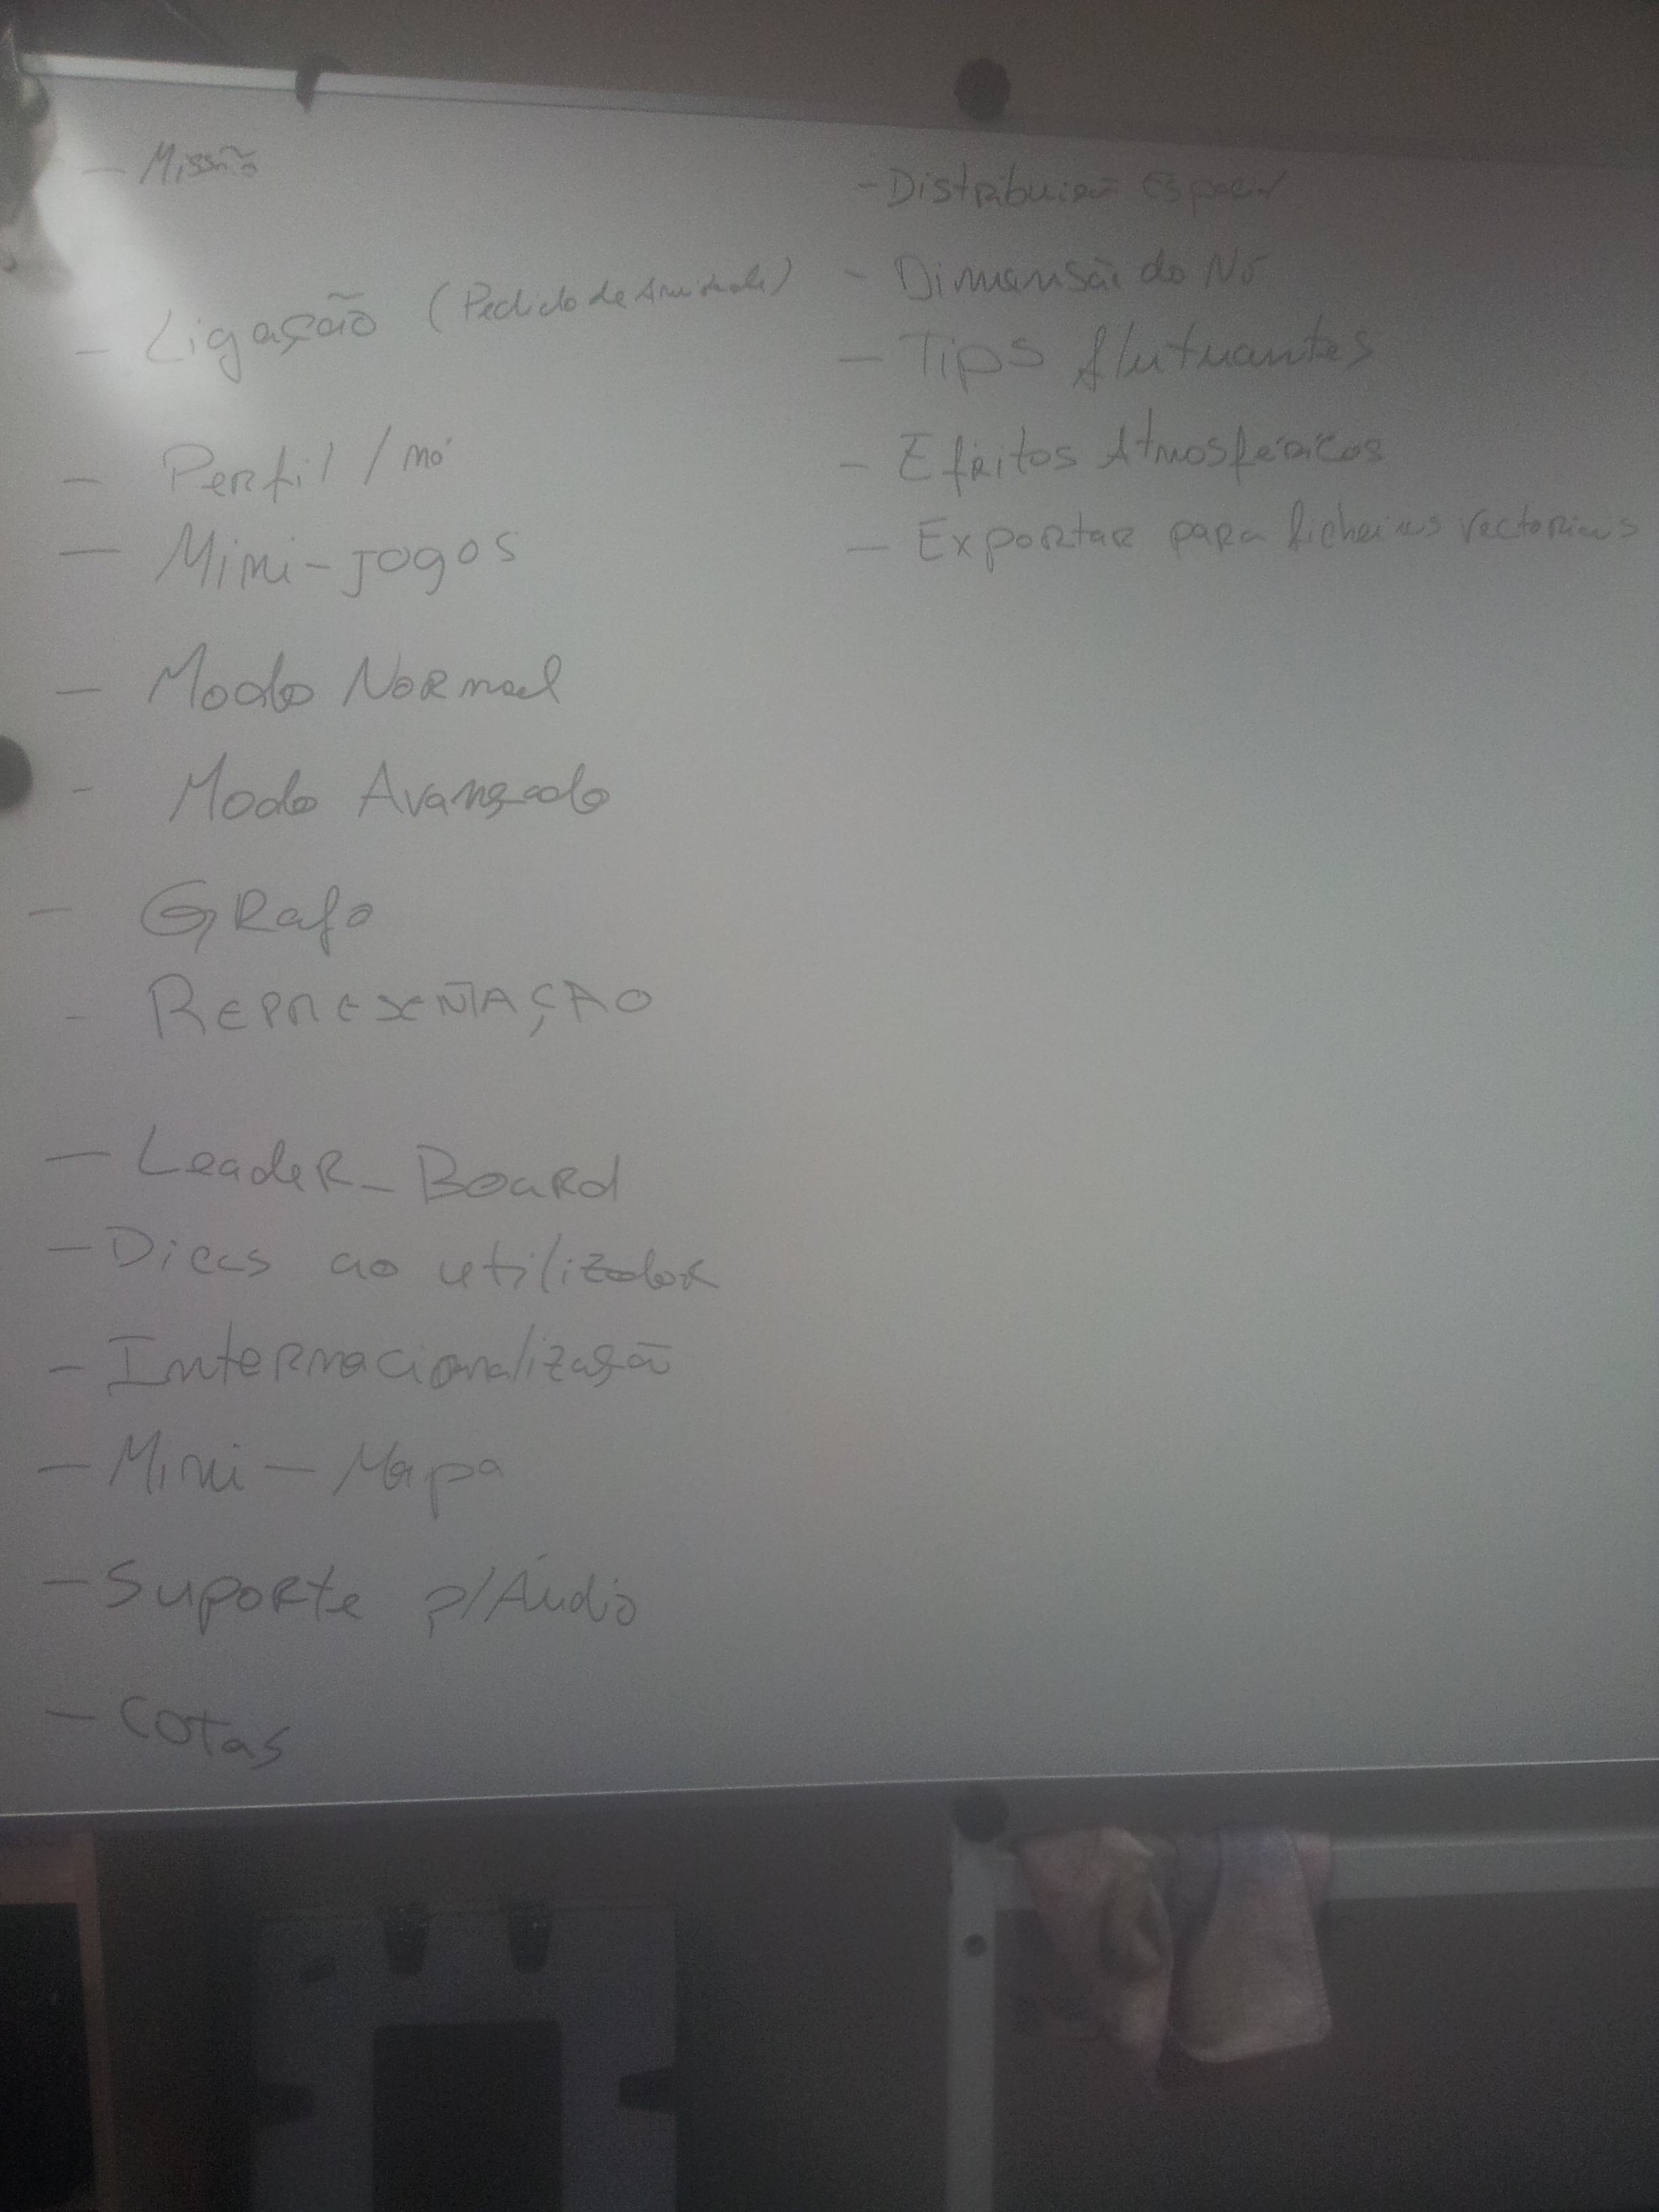 - Missão
- Ligação (Pedido de Amizade)
- Perfil / nó
- Mini-jogos
- Modo Normal
- Modo Avançado
- Grafo
- REPRESENTAÇÃO
- Leader_Board
- Dicas ao utilizador
- Internacionalização
- Mini - Mapa
- Suporte p/Áudio
- Cotas
- Distribuição Espacial
- Dimensão do Nó
- Tips flutuantes
- Efeitos Atmosféricos
- Exportar para ficheiros vectoriais